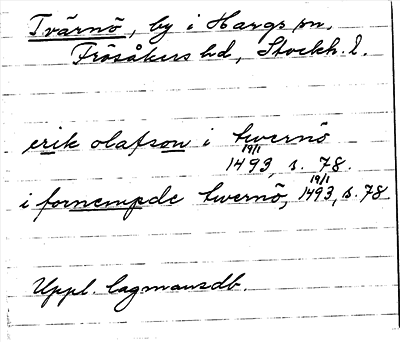 Tvärnö, by i Hargs sn,
Frösåkers hd, Stockh. l.
erik olafson i twernö
19/1
1493, s. 78.
i fornempde twernö, 19/1 1493, s. 78
Uppl. lagmansdb.